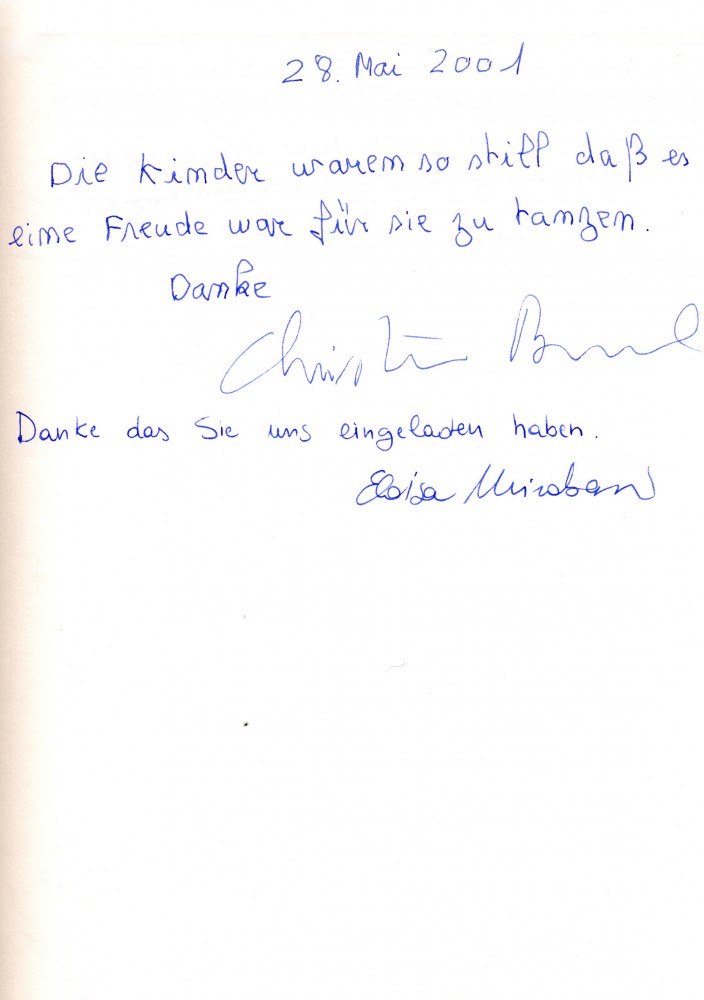 28. Mai 2001
Die Kinder waren so still daß es
eine Freude war für sie zu tanzen.
Danke
Danke das Sie uns eingeladen haben.
Eloisa